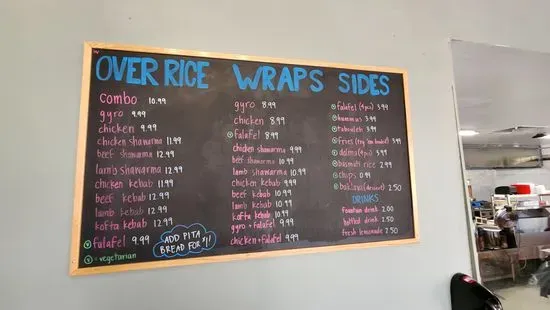 OVER RICE
combo 10.99
gyro 9.99
chicken 9.99
chicken shawarma 11.99
beef shawarma 12.99
lamb shawarma 12.99
chicken kebab 11.99
beef kebab 12.99
lamb kebab 12.99
kofta kebab 12.99
falafel 9.99
V = vegetarian
ADD PITA
BREAD FOR $1!
WRAPS
gyro 8.99
chicken 8.99
falafel 8.99
chicken shawarma 9.99
beef shawarma 10.99
lamb shawarma 10.99
chicken kebab 9.99
beef kebab 10.99
lamb kebab 10.99
kofta kebab 10.99
gyro + falafel 9.99
chicken + falafel 9.99
SIDES
falafel (4pcs) 3.99
hummus 3.99
tabouleh 3.99
fries 3.99
dolma (4pcs) 3.99
basmati rice 2.99
chips 0.99
baklava (dessert) 2.50
DRINKS
fountain drink 2.00
bottled drink 2.50
fresh lemonade 2.50